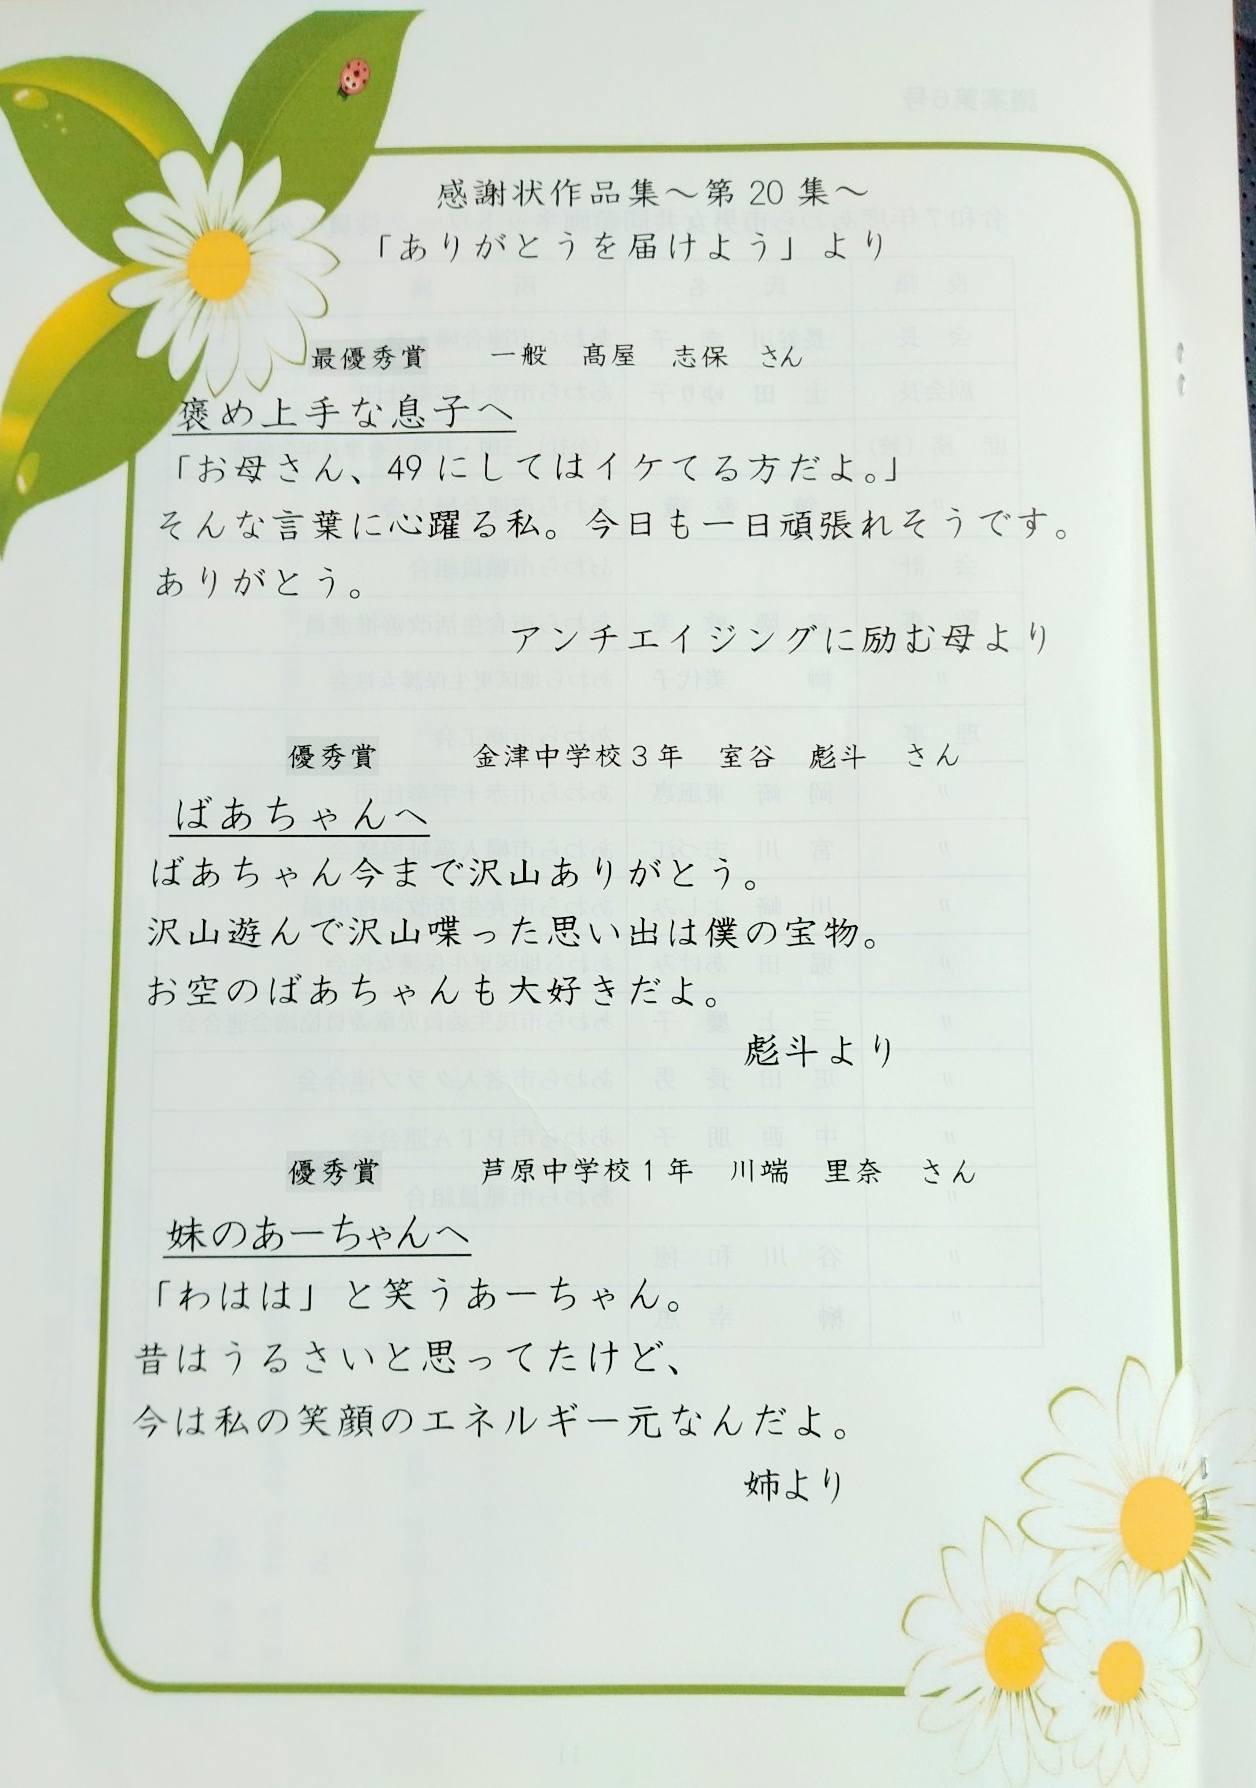 感謝状作品集～第 20 集～
「ありがとうを届けよう」より
最優秀賞　一般　髙屋　志保　さん
褒め上手な息子へ
「お母さん、49 にしてはイケてる方だよ。」
そんな言葉に心躍る私。今日も一日頑張れそうです。
ありがとう。
アンチエイジングに励む母より
優秀賞　金津中学校３年　室谷　彪斗　さん
ばあちゃんへ
ばあちゃん今まで沢山ありがとう。
沢山遊んで沢山喋った思い出は僕の宝物。
お空のばあちゃんも大好きだよ。
彪斗より
優秀賞　芦原中学校１年　川端　里奈　さん
妹のあーちゃんへ
「わはは」と笑うあーちゃん。
昔はうるさいと思ってたけど、
今は私の笑顔のエネルギー元なんだよ。
姉より